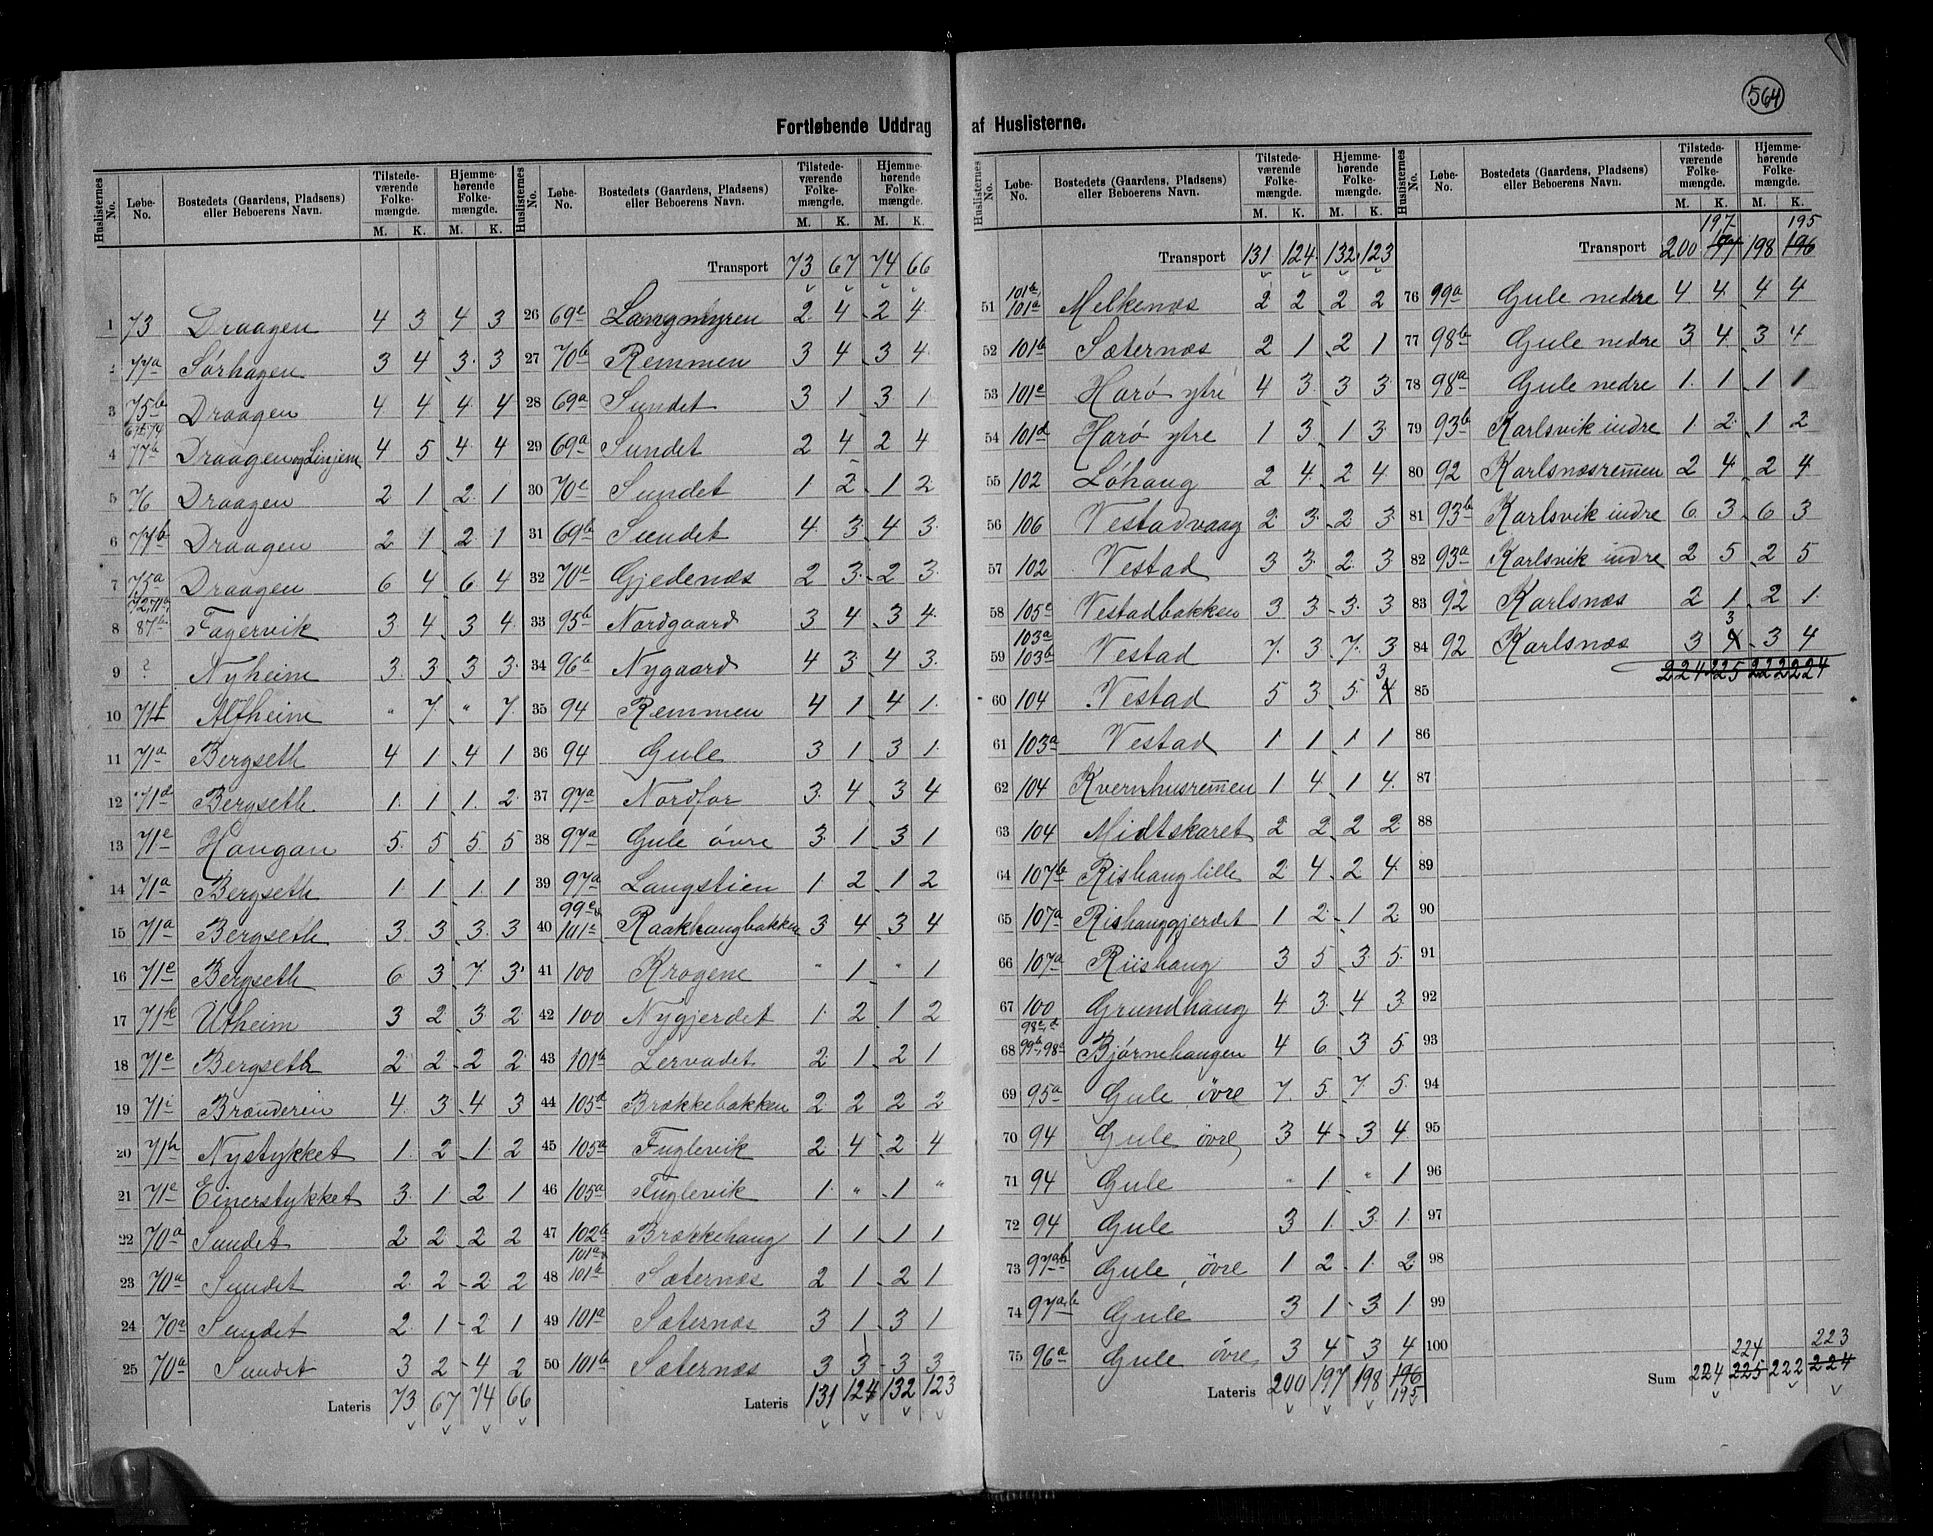 564
Fortløbende Uddrag af Huslisterne.
Huslisternes No. Løbe-No. Bostedets (Gaardens, Pladsens) eller Beboerens Navn. Tilstedeværende Folkemængde. M. K. Hjemmehørende Folkemængde. M. K.
1 73 Draagen 4 3 4 3
2 77a Sørhagen 3 4 3 3
3 75b Draagen 4 4 4 4
4 77a Draagen og Linjem 4 5 4 4
5 76 Draagen 2 1 2 1
6 77b Draagen 2 1 2 1
7 75a Draagen 6 4 6 4
8 72,71a, 87b Fagervik 3 4 3 4
9 ? Nyheim 3 3 3 3
10 71f Altheim " 7 " 7
11 71a Bergseth 4 1 4 1
12 71d Bergseth 1 1 1 2
13 71e Haugan 5 5 5 5
14 71a Bergseth 1 1 1 1
15 71a Bergseth 3 3 3 3
16 71e Bergseth 6 3 7 3
17 71k Utheim 3 2 3 2
18 71e Bergseth 2 2 2 2
19 71i Brænderein 4 3 4 3
20 71h Nystykket 1 2 1 2
21 71e Einerstykket 3 1 2 1
22 70a Sundet 2 2 2 2
23 70a Sundet 2 2 2 2
24 70a Sundet 2 1 2 1
25 70a Sundet 3 2 4 2
Lateris 73 67 74 66
Huslisternes No. Løbe-No. Bostedets (Gaardens, Pladsens) eller Beboerens Navn. Tilstedeværende Folkemængde. M. K. Hjemmehørende Folkemængde. M. K.
Transport 73 67 74 66
26 69c Langmyren 2 4 2 4
27 70b Remmen 3 4 3 4
28 69a Sundet 3 1 3 1
29 69a Sundet 2 4 2 4
30 70c Sundet 1 2 1 2
31 69b Sundet 4 3 4 3
32 70c Gjedenæs 2 3 2 3
33 95b Nordgaard 3 4 3 4
34 96b Nygaard 4 3 4 3
35 94 Remmen 4 1 4 1
36 94 Gule 3 1 3 1
37 97a Nordfor 3 4 3 4
38 97a Gule øvre 3 1 3 1
39 97a Langstien 1 2 1 2
40 99c, 101c Raakhaugbakken 3 4 3 4
41 100 Krogene " 1 " 1
42 100 Nygjerdet 1 2 1 2
43 101b Lervadet 2 1 2 1
44 105d Brækkebakken 2 2 2 2
45 105a Fuglevik 2 4 2 4
46 105a Fuglevik 1 " 1 "
47 102b Brækkehaug 1 1 1 1
48 101a, 101b Sæternæs 2 1 2 1
49 101a Sæternæs 3 1 3 1
50 101b Sæternæs 3 3 3 3
Lateris 131 124 132 123
Huslisternes No. Løbe-No. Bostedets (Gaardens, Pladsens) eller Beboerens Navn. Tilstedeværende Folkemængde. M. K. Hjemmehørende Folkemængde. M. K.
Transport 131 124 132 123
51 101b, 101a Melkenæs 2 2 2 2
52 101b Sæternæs 2 1 2 1
53 101c Harø ytre 4 3 3 3
54 101d Harø ytre 1 3 1 3
55 102 Løhaug 2 4 2 4
56 106 Vestadvaag 2 3 2 3
57 102 Vestad 3 3 2 3
58 105c Vestadbakken 3 3 3 3
59 103a 103b Vestad 7 3 7 3
60 104 Vestad 5 3 5 4 3
61 103a Vestad 1 1 1 1
62 104 Kvernhusremen 1 4 1 4
63 104 Midtskaret 2 2 2 2
64 107b Rishaug lille 2 4 2 4
65 107a Rishauggjerdet 1 2 1 2
66 107a Riishaug 3 5 3 5
67 100 Grundhaug 4 3 4 3
68 98c,d 99b, 98c Bjørnehaugen 4 6 3 5
69 95a Gule øvre 7 5 7 5
70 94 Gule øvre 3 4 3 4
71 94 Gule " 1 " 1
72 94 Gule 3 1 3 1
73 97ab Gule øvre 1 2 1 2
74 97a,b Gule 3 1 3 1
75 96a Gule øvre 3 4 3 4
Lateris 200 197 198 196
195
Huslisternes No. Løbe-No. Bostedets (Gaardens, Pladsens) eller Beboerens Navn. Tilstedeværende Folkemængde. M. K. Hjemmehørende Folkemængde. M. K.
197 195
Transport 200 197 198 196
76 99a Gule nedre 4 4 4 4
77 98b Gule nedre 3 4 3 4
78 98a Gule nedre 1 1 1 1
79 93b Karlsvik indre 1 2 1 2
80 92 Karlsnæsremen 2 4 2 4
81 93b Karlsvik indre 6 3 6 3
82 93a Karlsvik indre 2 5 2 5
83 92 Karlsnæs 2 1 2 1
84 92 Karlsnæs 3 4 3 3 4
85 224 225 222 224
86
87
88
89
90
91
92
93
94
95
96
97
98
99
100
224 223
Sum 224 225 222 224